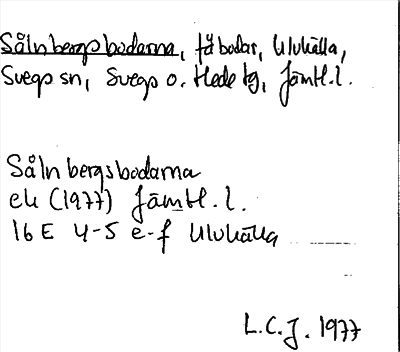 Sålnbergsbodarna, fäbodar, Ulvkälla,
Svegs sn, Svegs o. Hede tg, Jämtl. l.
Sålnbergsbodarna
ek (1977) Jämtl. l.
16 E 4-5 e-f Ulvkälla
L.C.J. 1977